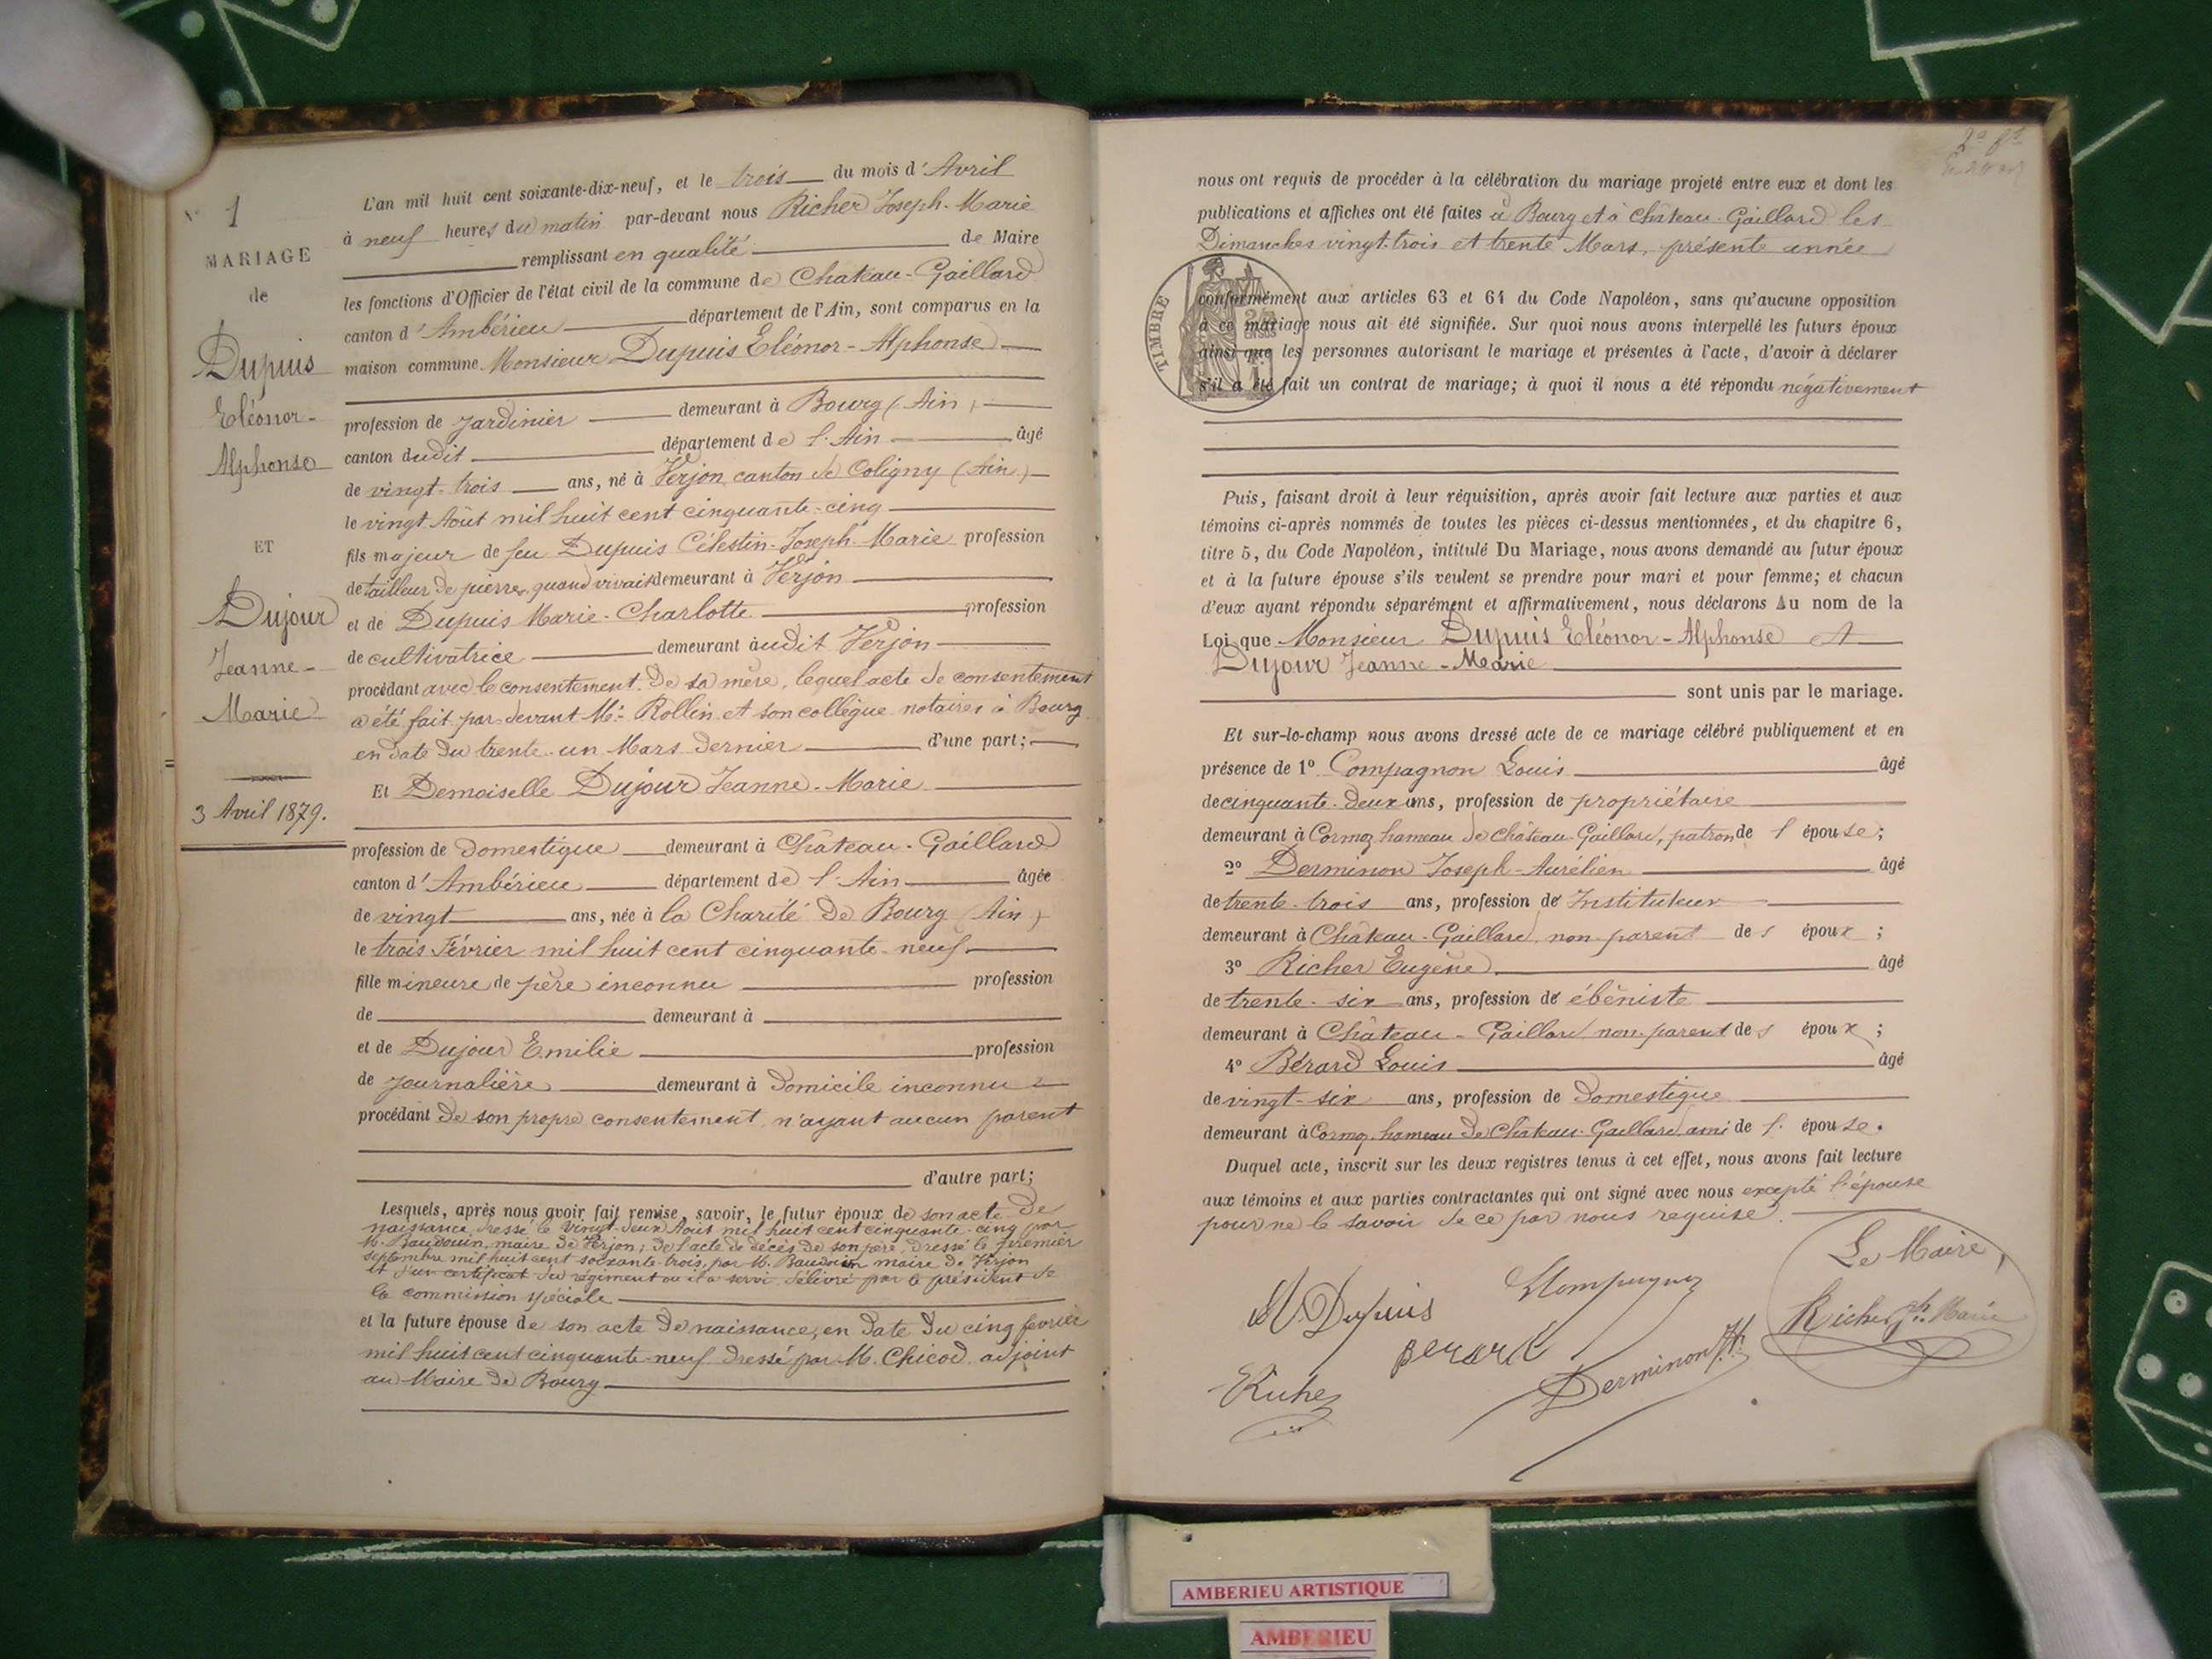 N° 1
MARIAGE
de
Dupuis
Eléonor-
Alphonse
ET
Dujour
Jeanne-
Marie
3 Avril 1879.
L'an mil huit cent soixante-dix-neuf, et le trois du mois d'Avril
à neuf heures du matin par-devant nous Richer Joseph-Marie
remplissant en qualité de Maire
les fonctions d'Officier de l'état civil de la commune de Chateau-Gaillard
canton d'Ambérieu département de l'Ain, sont comparus en la
maison commune Monsieur Dupuis Eléonor-Alphonse
profession de jardinier demeurant à Bourg (Ain)
canton dudit département de l'Ain âgé
de vingt-trois ans, né à Verjon, canton de Coligny (Ain)
le vingt Août mil huit cent cinquante-cinq
fils majeur de feu Dupuis Célestin-Joseph-Marie profession
de tailleur de pierres, quand vivait demeurant à Verjon
et de Dupuis Marie-Charlotte profession
de cultivatrice demeurant àudit Verjon
procédant avec le consentement de sa mère, lequel acte de consentement
a été fait par-devant Me Rollin et son collègue notaires à Bourg
en date du trente-un Mars dernier d'une part;
Et Demoiselle Dujour Jeanne-Marie
profession de domestique demeurant à Château-Gaillard
canton d'Ambérieu département de l'Ain âgée
de vingt ans, née à la Charité de Bourg (Ain)
le trois Février mil huit cent cinquante-neuf
fille mineure de père inconnu profession
de demeurant à
et de Dujour Emilie profession
de journalière demeurant à domicile inconnu
procédant de son propre consentement, n'ayant aucun parent
d'autre part;
Lesquels, après nous avoir fait remise, savoir, le futur époux de son acte de
naissance dressé le vingt-deux Août mil huit cent cinquante-cinq par
M. Baudouin, maire de Verjon; de l'acte de décès de son père, dressé le premier
septembre mil huit cent soixante-trois, par M. Baudouin maire de Verjon
et d'un certificat du régiment où il a servi, délivré par le président de
la commission spéciale
et la future épouse de son acte de naissance, en date du cinq février
mil huit cent cinquante-neuf dressé par M. Chicod, adjoint
au Maire de Bourg
nous ont requis de procéder à la célébration du mariage projeté entre eux et dont les
publications et affiches ont été faites à Bourg et à Château-Gaillard les
Dimanches vingt-trois et trente Mars, présente année
TIMBRE
conformément aux articles 63 et 64 du Code Napoléon, sans qu'aucune opposition
à ce mariage nous ait été signifiée. Sur quoi nous avons interpellé les futurs époux
ainsi que les personnes autorisant le mariage et présentes à l'acte, d'avoir à déclarer
s'il a été fait un contrat de mariage; à quoi il nous a été répondu négativement
Puis, faisant droit à leur réquisition, après avoir fait lecture aux parties et aux
témoins ci-après nommés de toutes les pièces ci-dessus mentionnées, et du chapitre 6,
titre 5, du Code Napoléon, intitulé Du Mariage, nous avons demandé au futur époux
et à la future épouse s'ils veulent se prendre pour mari et pour femme; et chacun
d'eux ayant répondu séparément et affirmativement, nous déclarons Au nom de la
Loi que Monsieur Dupuis Eléonor-Alphonse et
Dujour Jeanne-Marie
sont unis par le mariage.
Et sur-le-champ nous avons dressé acte de ce mariage célébré publiquement et en
présence de 1° Compagnon Louis âgé
de cinquante-deux ans, profession de propriétaire
demeurant à Cormoz hameau de Château-Gaillard, patron de l'épouse;
2° Derminon Joseph-Aurélien âgé
de trente-trois ans, profession de Instituteur
demeurant à Château-Gaillard, non parent des époux;
3° Richer Eugène âgé
de trente-six ans, profession de ébéniste
demeurant à Château-Gaillard non parent des époux;
4° Bérard Louis âgé
de vingt-six ans, profession de domestique
demeurant à Cormoz, hameau de Château-Gaillard, ami de l'épouse.
Duquel acte, inscrit sur les deux registres tenus à cet effet, nous avons fait lecture
aux témoins et aux parties contractantes qui ont signé avec nous excepté l'épouse
pour ne le savoir de ce par nous requise.
Le Maire,
Richer Jph Marie
Dupuis
Berard
Derminon
Richer
AMBERIEU ARTISTIQUE
AMBERIEU